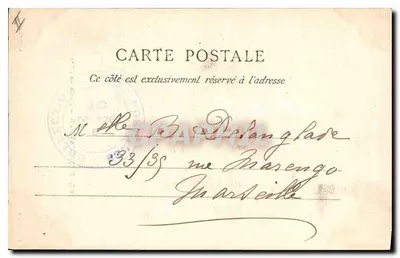 CARTE POSTALE
Ce côté est exclusivement réservé à l'adresse
Melle B. Delanglade
33/35 rue Marengo
Marseille